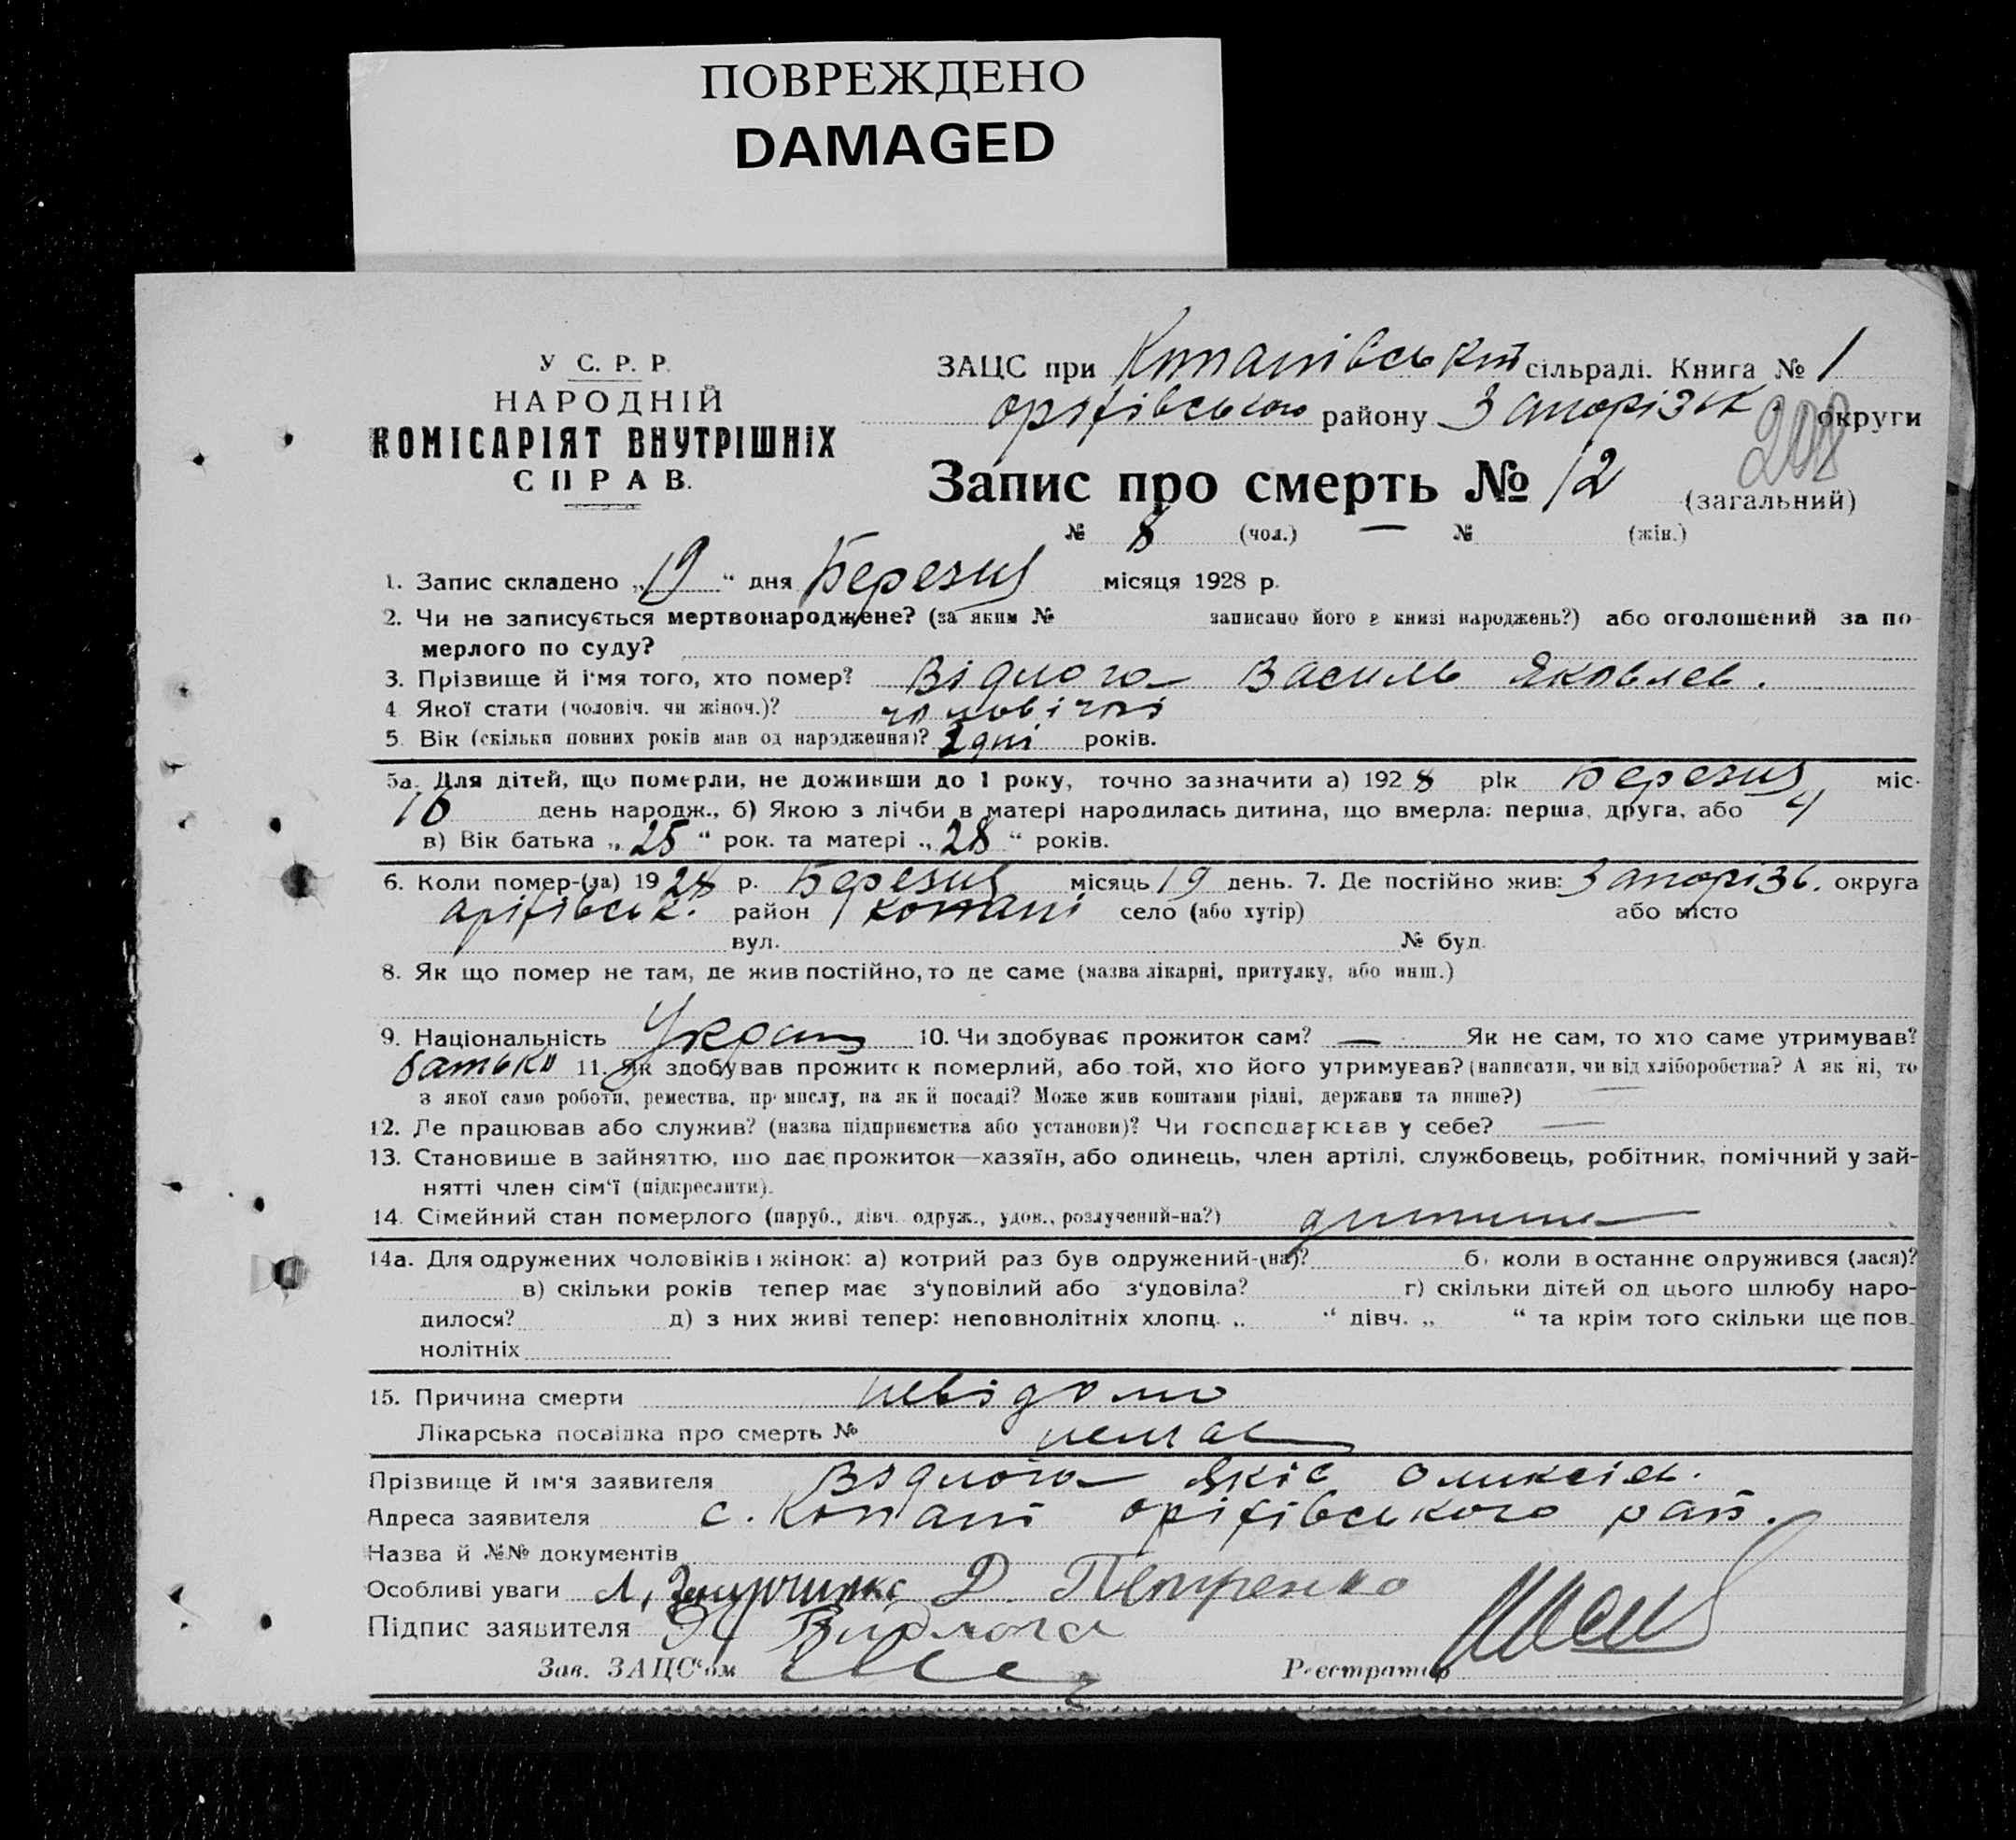 ПОВРЕЖДЕНО
DAMAGED
У С. Р. Р.
НАРОДНІЙ
КОМІСАРІЯТ ВНУТРІШНІХ
СПРАВ.
ЗАЦС при Копанівській сільраді. Книга № 1
оріхівського району Запорізьк. округи
Запис про смерть № 12 (загальний)
№ 8 (чол.) — № (жін.)
1. Запис складено „19“ дня Березня місяця 1928 р.
2. Чи не записується мертвонароджене? (за яким № записано його в книзі народжень?) або оголошений за по-
мерлого по суду?
3. Прізвище й і'мя того, хто помер? Відлога Василь Яковлев.
4 Якої стати (чоловіч. чи жіноч.)? чоловічої
5. Вік (скільки повних років мав од народження)? 3 дні років.
5а. Для дітей, що померли, не доживши до 1 року, точно зазначити а) 1928 рік Березня міс.
16 день народж., б) Якою з лічби в матері народилась дитина, що вмерла: перша, друга, або 4
в) Вік батька „25“ рок. та матері „28“ років.
6. Коли помер-(ла) 1928 р. Березня місяць 19 день. 7. Де постійно жив: Запорізь. округа
оріхівськ. район Копані село (або хутір) або місто
вул. № буд.
8. Як що помер не там, де жив постійно, то де саме (назва лікарні, притулку, або инш.)
9. Національність Україн 10. Чи здобуває прожиток сам? — Як не сам, то хто саме утримував?
батько 11. Як здобував прожиток померлий, або той, хто його утримував? (написати, чи від хліборобства? А як ні, то
з якої само роботи, ремества, промислу, на якій посаді? Може жив коштами рідні, держави та инше?) —
12. Де працював або служив? (назва підприємства або установи)? Чи господарював у себе? —
13. Становище в зайняттю, що дає прожиток—хазяїн, або одинець, член артілі, службовець, робітник, помічний у зай-
нятті член сім'ї (підкреслити).
14. Сімейний стан померлого (паруб., дівч. одруж., удов., розлучений-на?) дитина
14а. Для одружених чоловіків і жінок: а) котрий раз був одружений-(на)? б) коли востаннє одружився (лася)?
в) скільки років тепер має з'уповілий або з'удовіла? г) скільки дітей од цього шлюбу наро-
дилося? д) з них живі тепер: неповнолітніх хлопц. „ “ дівч. „ “ та крім того скільки ще пов.
нолітніх
15. Причина смерти невідомо
Лікарська посвідка про смерть № немає
Прізвище й ім'я заявителя Відлога Якіс Оликсієв.
Адреса заявителя с. Копані оріхівського рай.
Назва й №№ документів
Особливі уваги Д. Петренко
Підпис заявителя Видлога
Зав. ЗАЦС'ом Реєстратор